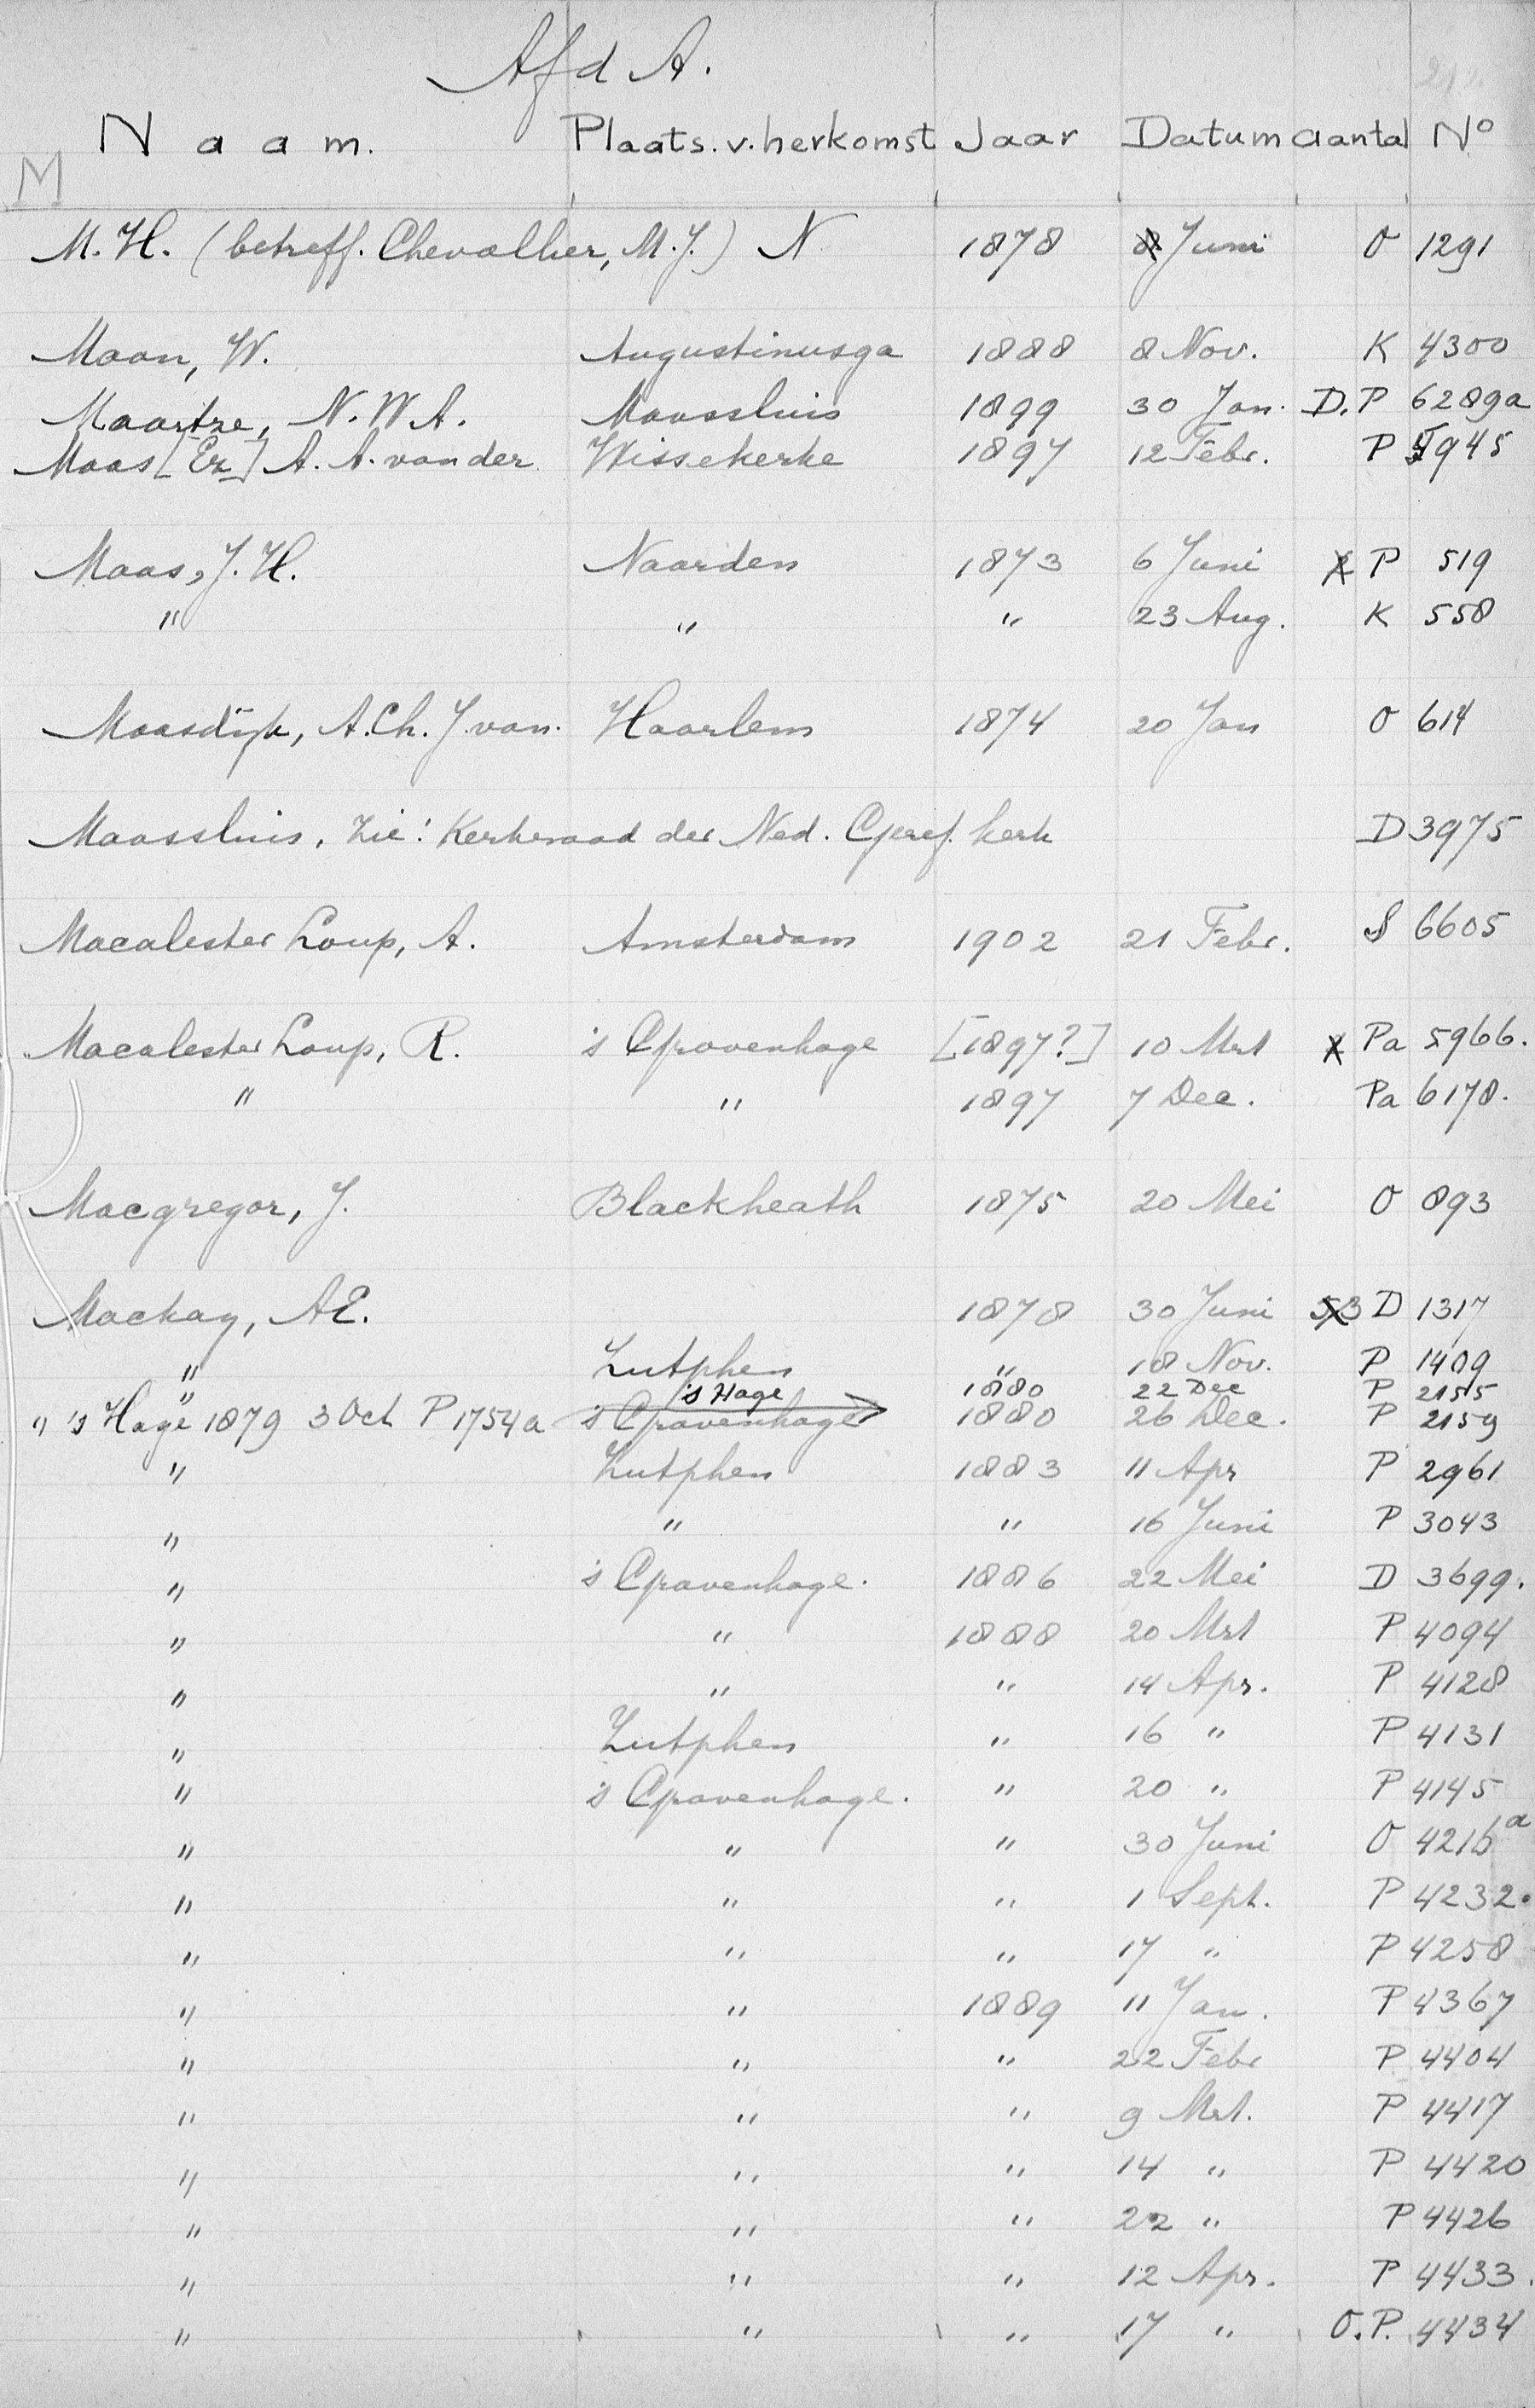 Afd A.
N a a m. Plaats. v. herkomst Jaar Datum aantal No
M
M. H. (betreff. Chevallier, M. J.) N 1878 8 Juni O 1291
Maan, W. Augustinusga 1888 8 Nov. K 4300
Maartze, N. W A. Maassluis 1899 30 Jan. D. P 6289a
Maas [Ez] A. A. van der Wissekerke 1897 12 Febr. P 5945
Maas, J. H. Naarden 1873 6 Juni 2 P 519
" " " 23 Aug. K 558
Maasdijk, A. Ch. J. van. Haarlem 1874 20 Jan O 614
Maassluis, Zie: Kerkeraad der Ned. Geref. kerk D 3975
Macalester Loup, A. Amsterdam 1902 21 Febr. S 6605
Macalester Loup, R. 's Gravenhage [1897?] 10 Mrt Pa 5966.
" " 1897 7 Dec. Pa 6178.
Macgregor, J. Blackheath 1875 20 Mei O 893
Mackay, A E. 1878 30 Juni 53 D 1317
" Zutphen " 18 Nov. P 1409
" 's Hage 1880 22 Dec P 2155
" 's Hage 1879 3 Oct P 1754a 's Gravenhage 1880 26 Dec. P 2159
" Zutphen 1883 11 Apr P 2961
" " " 16 Juni P 3043
" 's Gravenhage. 1886 22 Mei D 3699.
" " 1888 20 Mrt P 4094
" " " 14 Apr. P 4128
" Zutphen " 16 " P 4131
" 's Gravenhage. " 20 " P 4145
" " " 30 Juni O 4216a
" " " 1 Sept. P 4232.
" " " 17 " P 4258
" " 1889 11 Jan. P 4367
" " " 22 Febr P 4404
" " " 9 Mrt. P 4417
" " " 14 " P 4420
" " " 22 " P 4426
" " " 12 Apr. P 4433.
" " " 17 " O. P. 4434